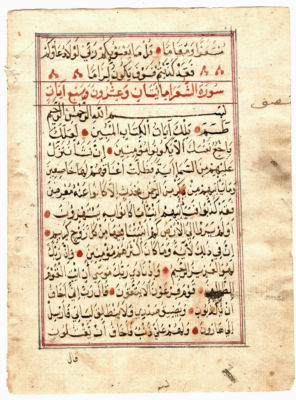 مستقرا ومقاما قل ما يعبؤ بكم ربي لولا دعاؤكم
فقد كذبتم فسوف يكون لزاما
سورة الشعراء مايتان وعشرون وسبع ايات
بسم الله الرحمن الرحيم
طسم تلك آيات الكتاب المبين لعلك
باخع نفسك الا يكونوا مؤمنين ان نشأ ننزل
عليهم من السماء آية فظلت اعناقهم لها خاضعين
وما يأتيهم من ذكر من الرحمن محدث الا كانوا عنه معرضين
فقد كذبوا فسيأتيهم انباء ما كانوا به يستهزءون
اولم يروا الى الارض كم انبتنا فيها من كل زوج كريم
ان في ذلك لآية وما كان اكثرهم مؤمنين وان ربك
لهو العزيز الرحيم واذ نادى ربك موسى ان ائت القوم
الظالمين قوم فرعون الا يتقون قال رب اني اخاف
ان يكذبون ويضيق صدري ولا ينطلق لساني فارسل
الى هارون ولهم علي ذنب فاخاف ان يقتلون
قال